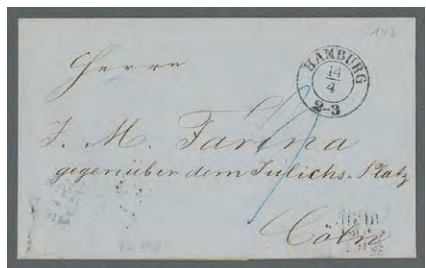 143
HAMBURG
14
4
2-3
Herrn
J. M. Farina
gegenüber dem Julichs-Platz
Cöln